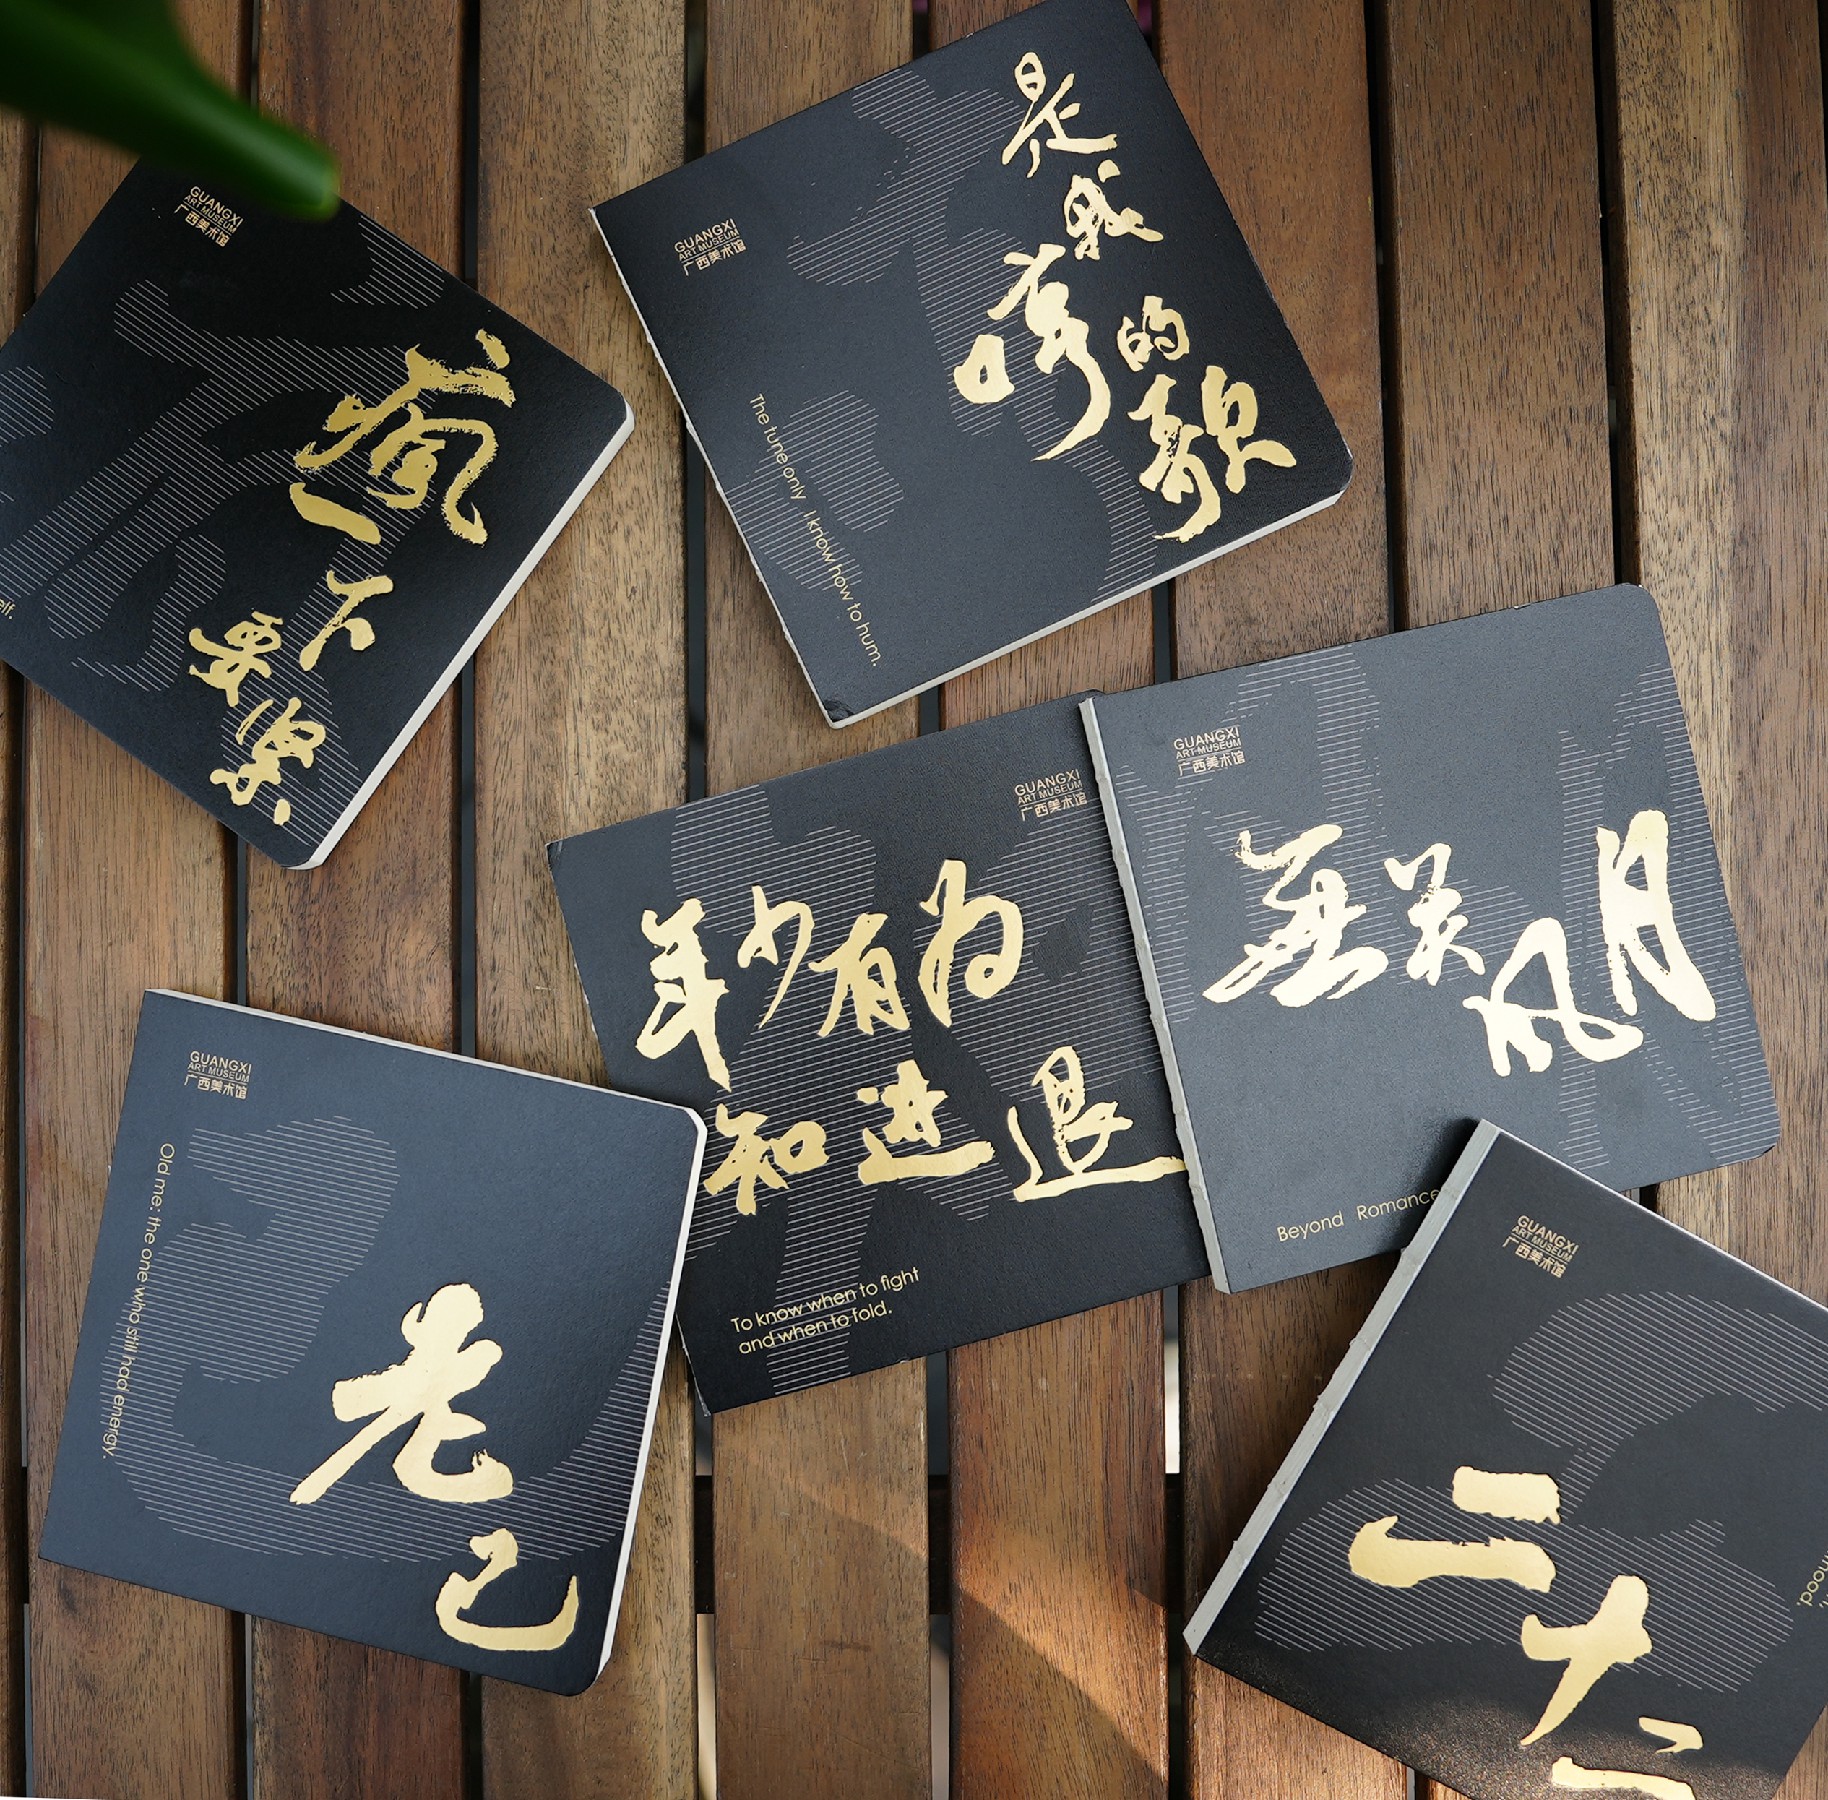 GUANGXI
ART MUSEUM
广西美术馆
瘋一下要緊
elf.
GUANGXI
ART MUSEUM
广西美术馆
是我哼的歌
The tune only I know how to hum.
GUANGXI
ART MUSEUM
广西美术馆
年少有为
知进退
To know when to fight
and when to fold.
GUANGXI
ART MUSEUM
广西美术馆
無关风月
Beyond Romance
GUANGXI
ART MUSEUM
广西美术馆
老己
Old me: the one who still had energy.
GUANGXI
ART MUSEUM
广西美术馆
二十二